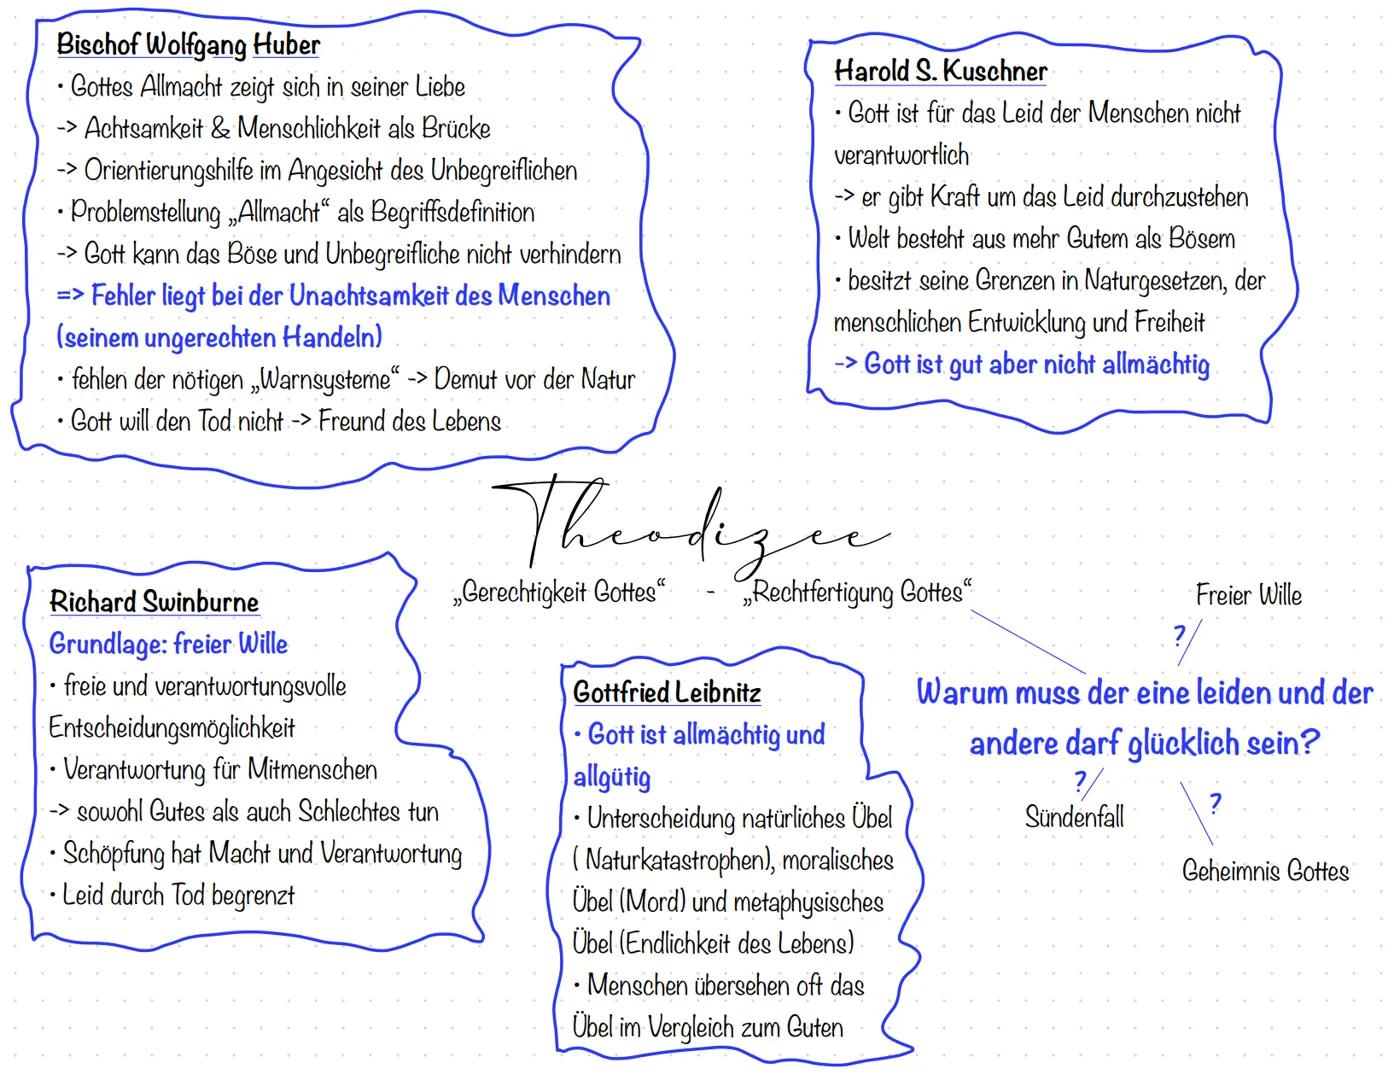 Bischof Wolfgang Huber
• Gottes Allmacht zeigt sich in seiner Liebe
-> Achtsamkeit & Menschlichkeit als Brücke
-> Orientierungshilfe im Angesicht des Unbegreiflichen
• Problemstellung „Allmacht“ als Begriffsdefinition
-> Gott kann das Böse und Unbegreifliche nicht verhindern
=> Fehler liegt bei der Unachtsamkeit des Menschen
(seinem ungerechten Handeln)
• fehlen der nötigen „Warnsysteme“ -> Demut vor der Natur
• Gott will den Tod nicht -> Freund des Lebens
Harold S. Kuschner
• Gott ist für das Leid der Menschen nicht
verantwortlich
-> er gibt Kraft um das Leid durchzustehen
• Welt besteht aus mehr Gutem als Bösem
• besitzt seine Grenzen in Naturgesetzen, der
menschlichen Entwicklung und Freiheit
-> Gott ist gut aber nicht allmächtig
Theodizee
„Gerechtigkeit Gottes“ - „Rechtfertigung Gottes“
Richard Swinburne
Grundlage: freier Wille
• freie und verantwortungsvolle
Entscheidungsmöglichkeit
• Verantwortung für Mitmenschen
-> sowohl Gutes als auch Schlechtes tun
• Schöpfung hat Macht und Verantwortung
• Leid durch Tod begrenzt
Gottfried Leibnitz
• Gott ist allmächtig und
allgütig
• Unterscheidung natürliches Übel
( Naturkatastrophen), moralisches
Übel (Mord) und metaphysisches
Übel (Endlichkeit des Lebens)
• Menschen übersehen oft das
Übel im Vergleich zum Guten
Freier Wille
?
Warum muss der eine leiden und der
andere darf glücklich sein?
?
Sündenfall
?
Geheimnis Gottes